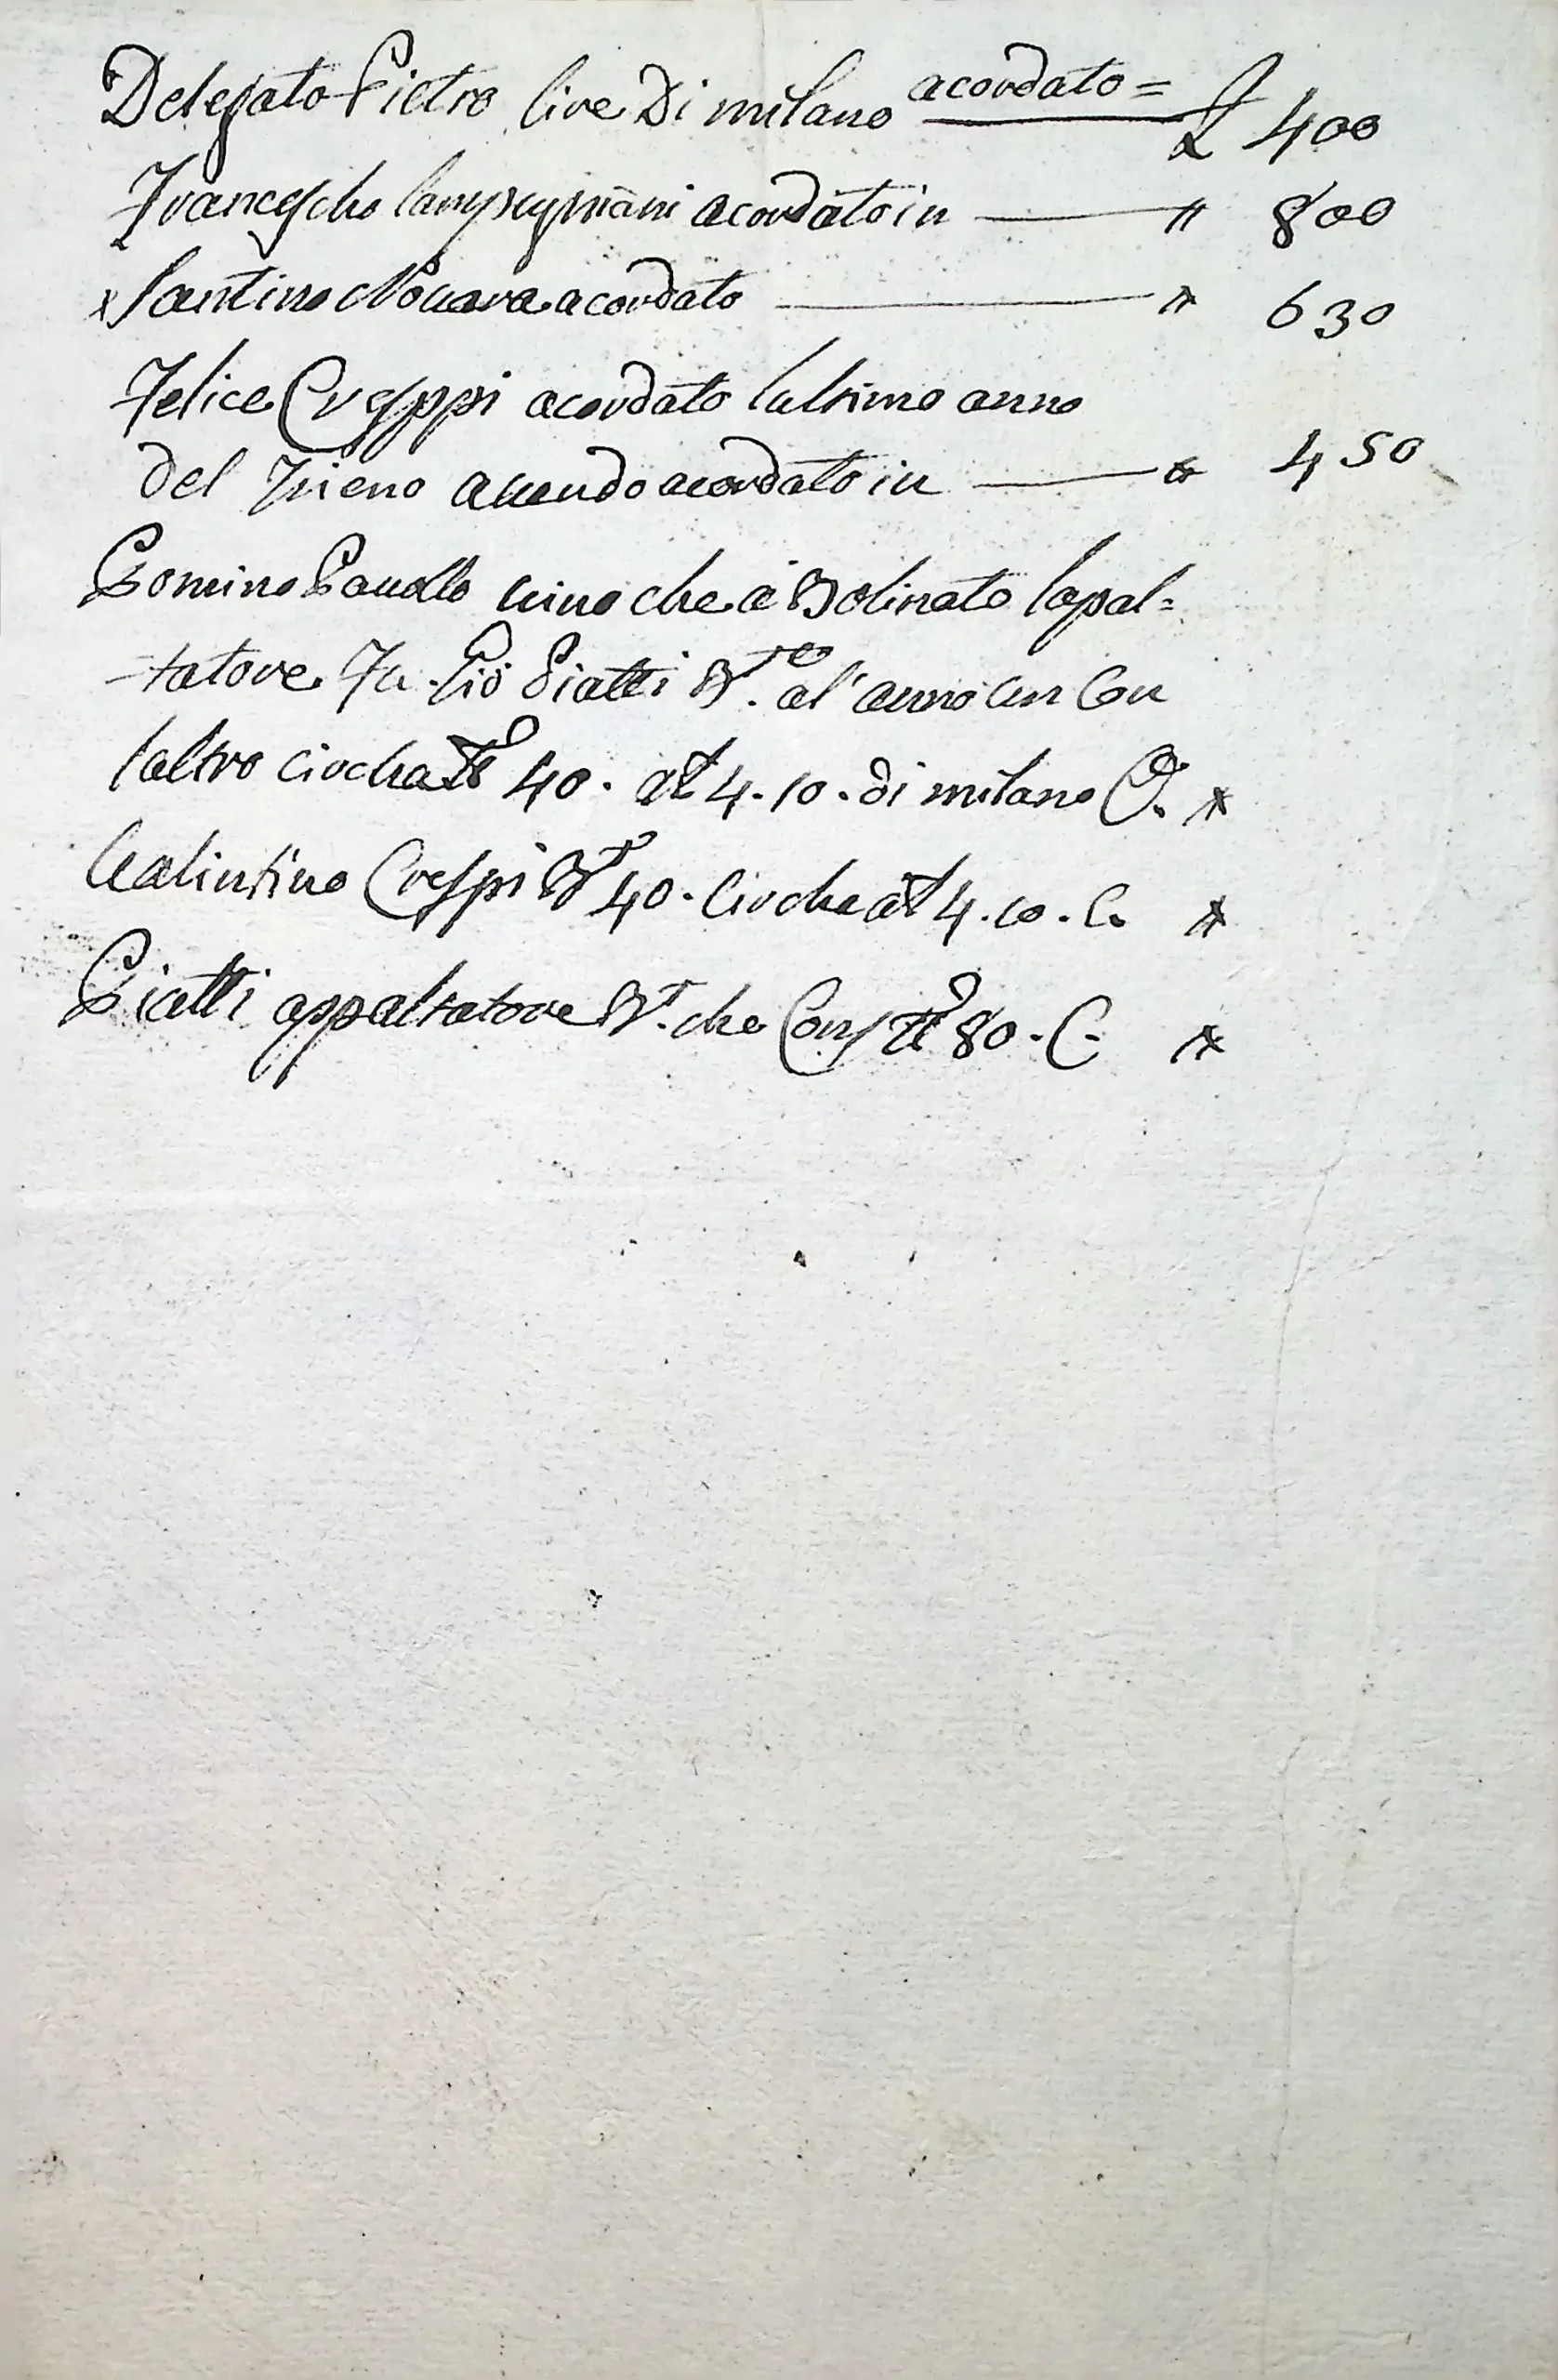 Delegato Pietro lire di milano acordato = £ 400
Francescho lampugniani acordato in — " 800
x Santino Novara acordato — " 630
Felice Cresppi acordato lultimo anno
del Trieno avendo acordato in — " 450
Pomino Pauollo vino che a Bolinato lapal=
=tatore Fu. Pio Piatti Bte. al' anno un Con
laltro circha 40. at 4. 10. di milano
Valintino Crespi Bt 40. Circha at 4. 10. C.
Piatti appaltatore Bt. che Cons 80. C.